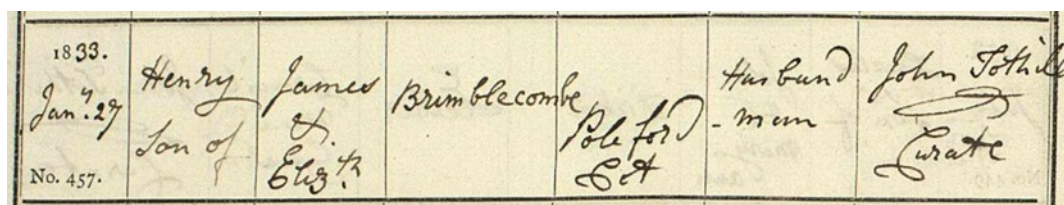 1833.
Jan.y 27
No. 457.
Henry
Son of
James
&
Eliz.th
Brimblecombe
Poleford
Husband
- man
John Tothill
Curate